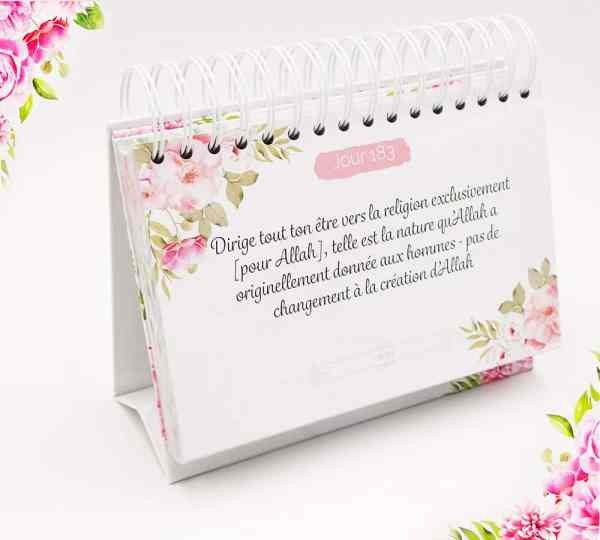 Jour 183
Dirige tout ton être vers la religion exclusivement
[pour Allah], telle est la nature qu'Allah a
originellement donnée aux hommes - pas de
changement à la création d'Allah